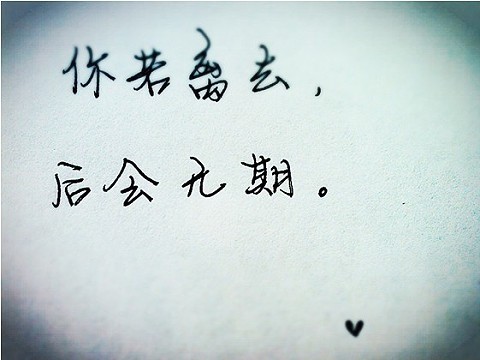 你若离去，
后会无期。